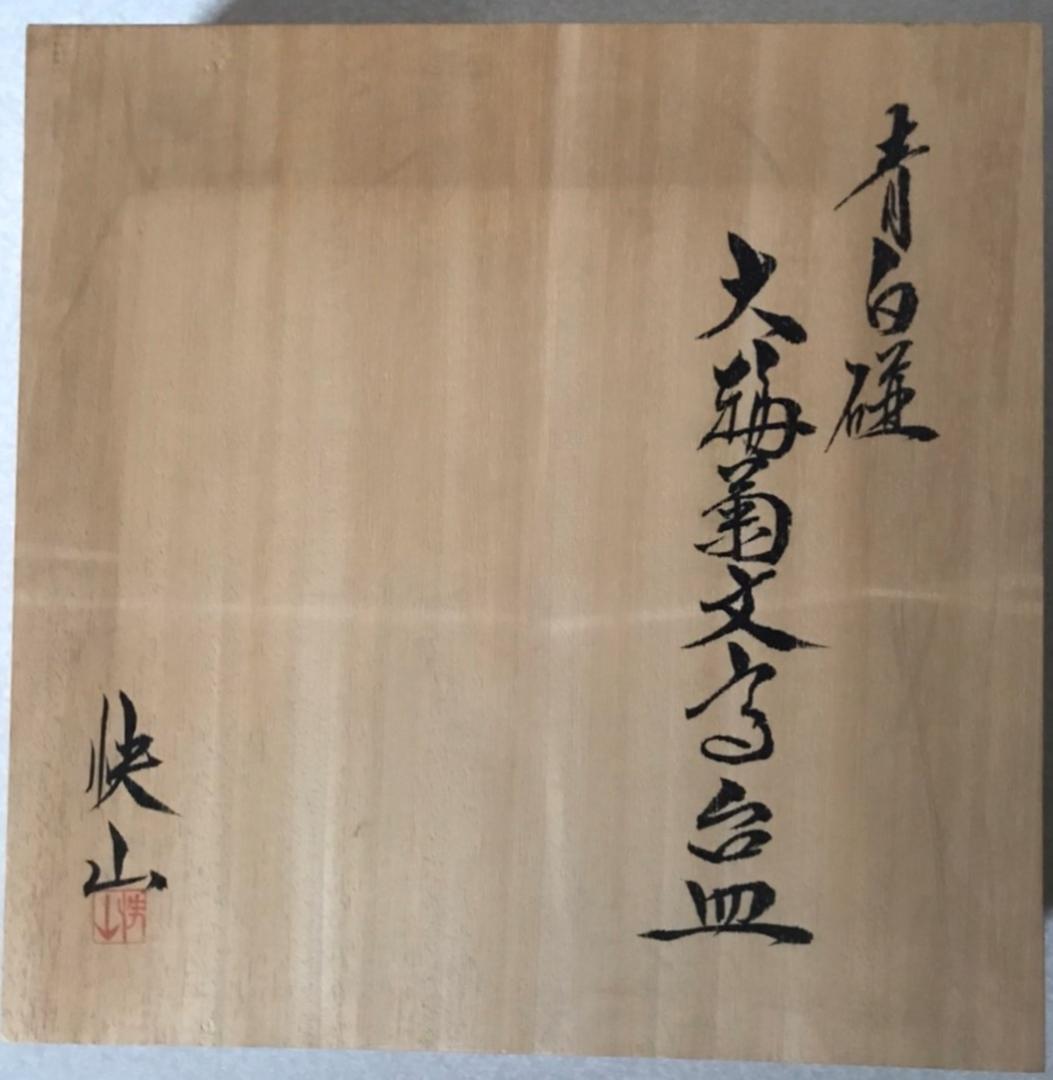 青白磁
大輪菊文高台皿
快山
快山